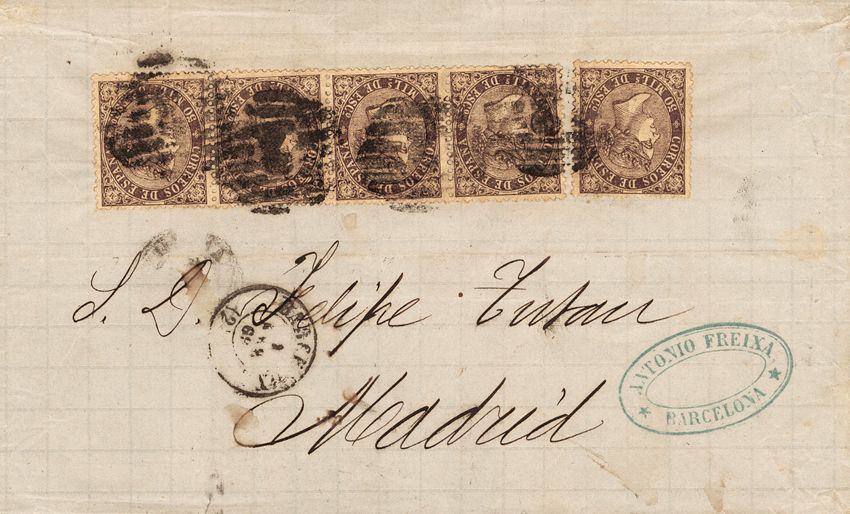 CORREOS DE ESPAÑA 50 MIL.S DE ESCO
CORREOS DE ESPAÑA 50 MIL.S DE ESCO
CORREOS DE ESPAÑA 50 MIL.S DE ESCO
CORREOS DE ESPAÑA 50 MIL.S DE ESCO
CORREOS DE ESPAÑA 50 MIL.S DE ESCO
S. D. Felipe Tutau
Madrid
ANTONIO FREIXA
BARCELONA